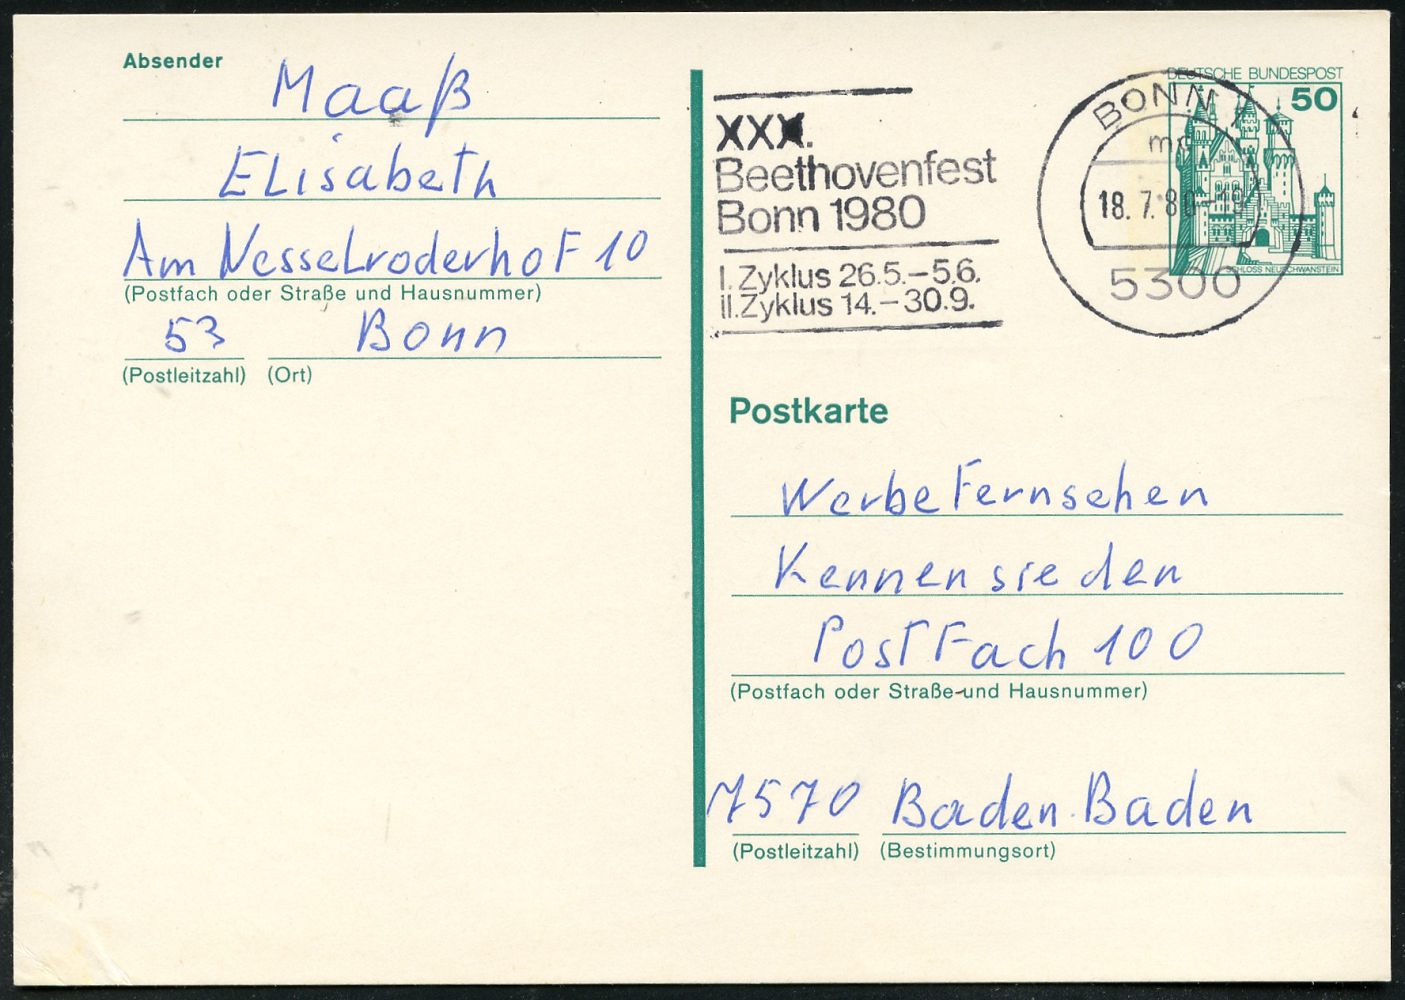 Absender
Maaß
Elisabeth
Am Nesselroderhof 10
(Postfach oder Straße und Hausnummer)
53 Bonn
(Postleitzahl) (Ort)
XXX.
Beethovenfest
Bonn 1980
I. Zyklus 26.5.–5.6.
II. Zyklus 14.–30.9.
BONN 1
18.7.80-19
5300
DEUTSCHE BUNDESPOST
50
SCHLOSS NEUSCHWANSTEIN
Postkarte
Werbefernsehen
Kennen sie den
Postfach 100
(Postfach oder Straße und Hausnummer)
7570 Baden-Baden
(Postleitzahl) (Bestimmungsort)